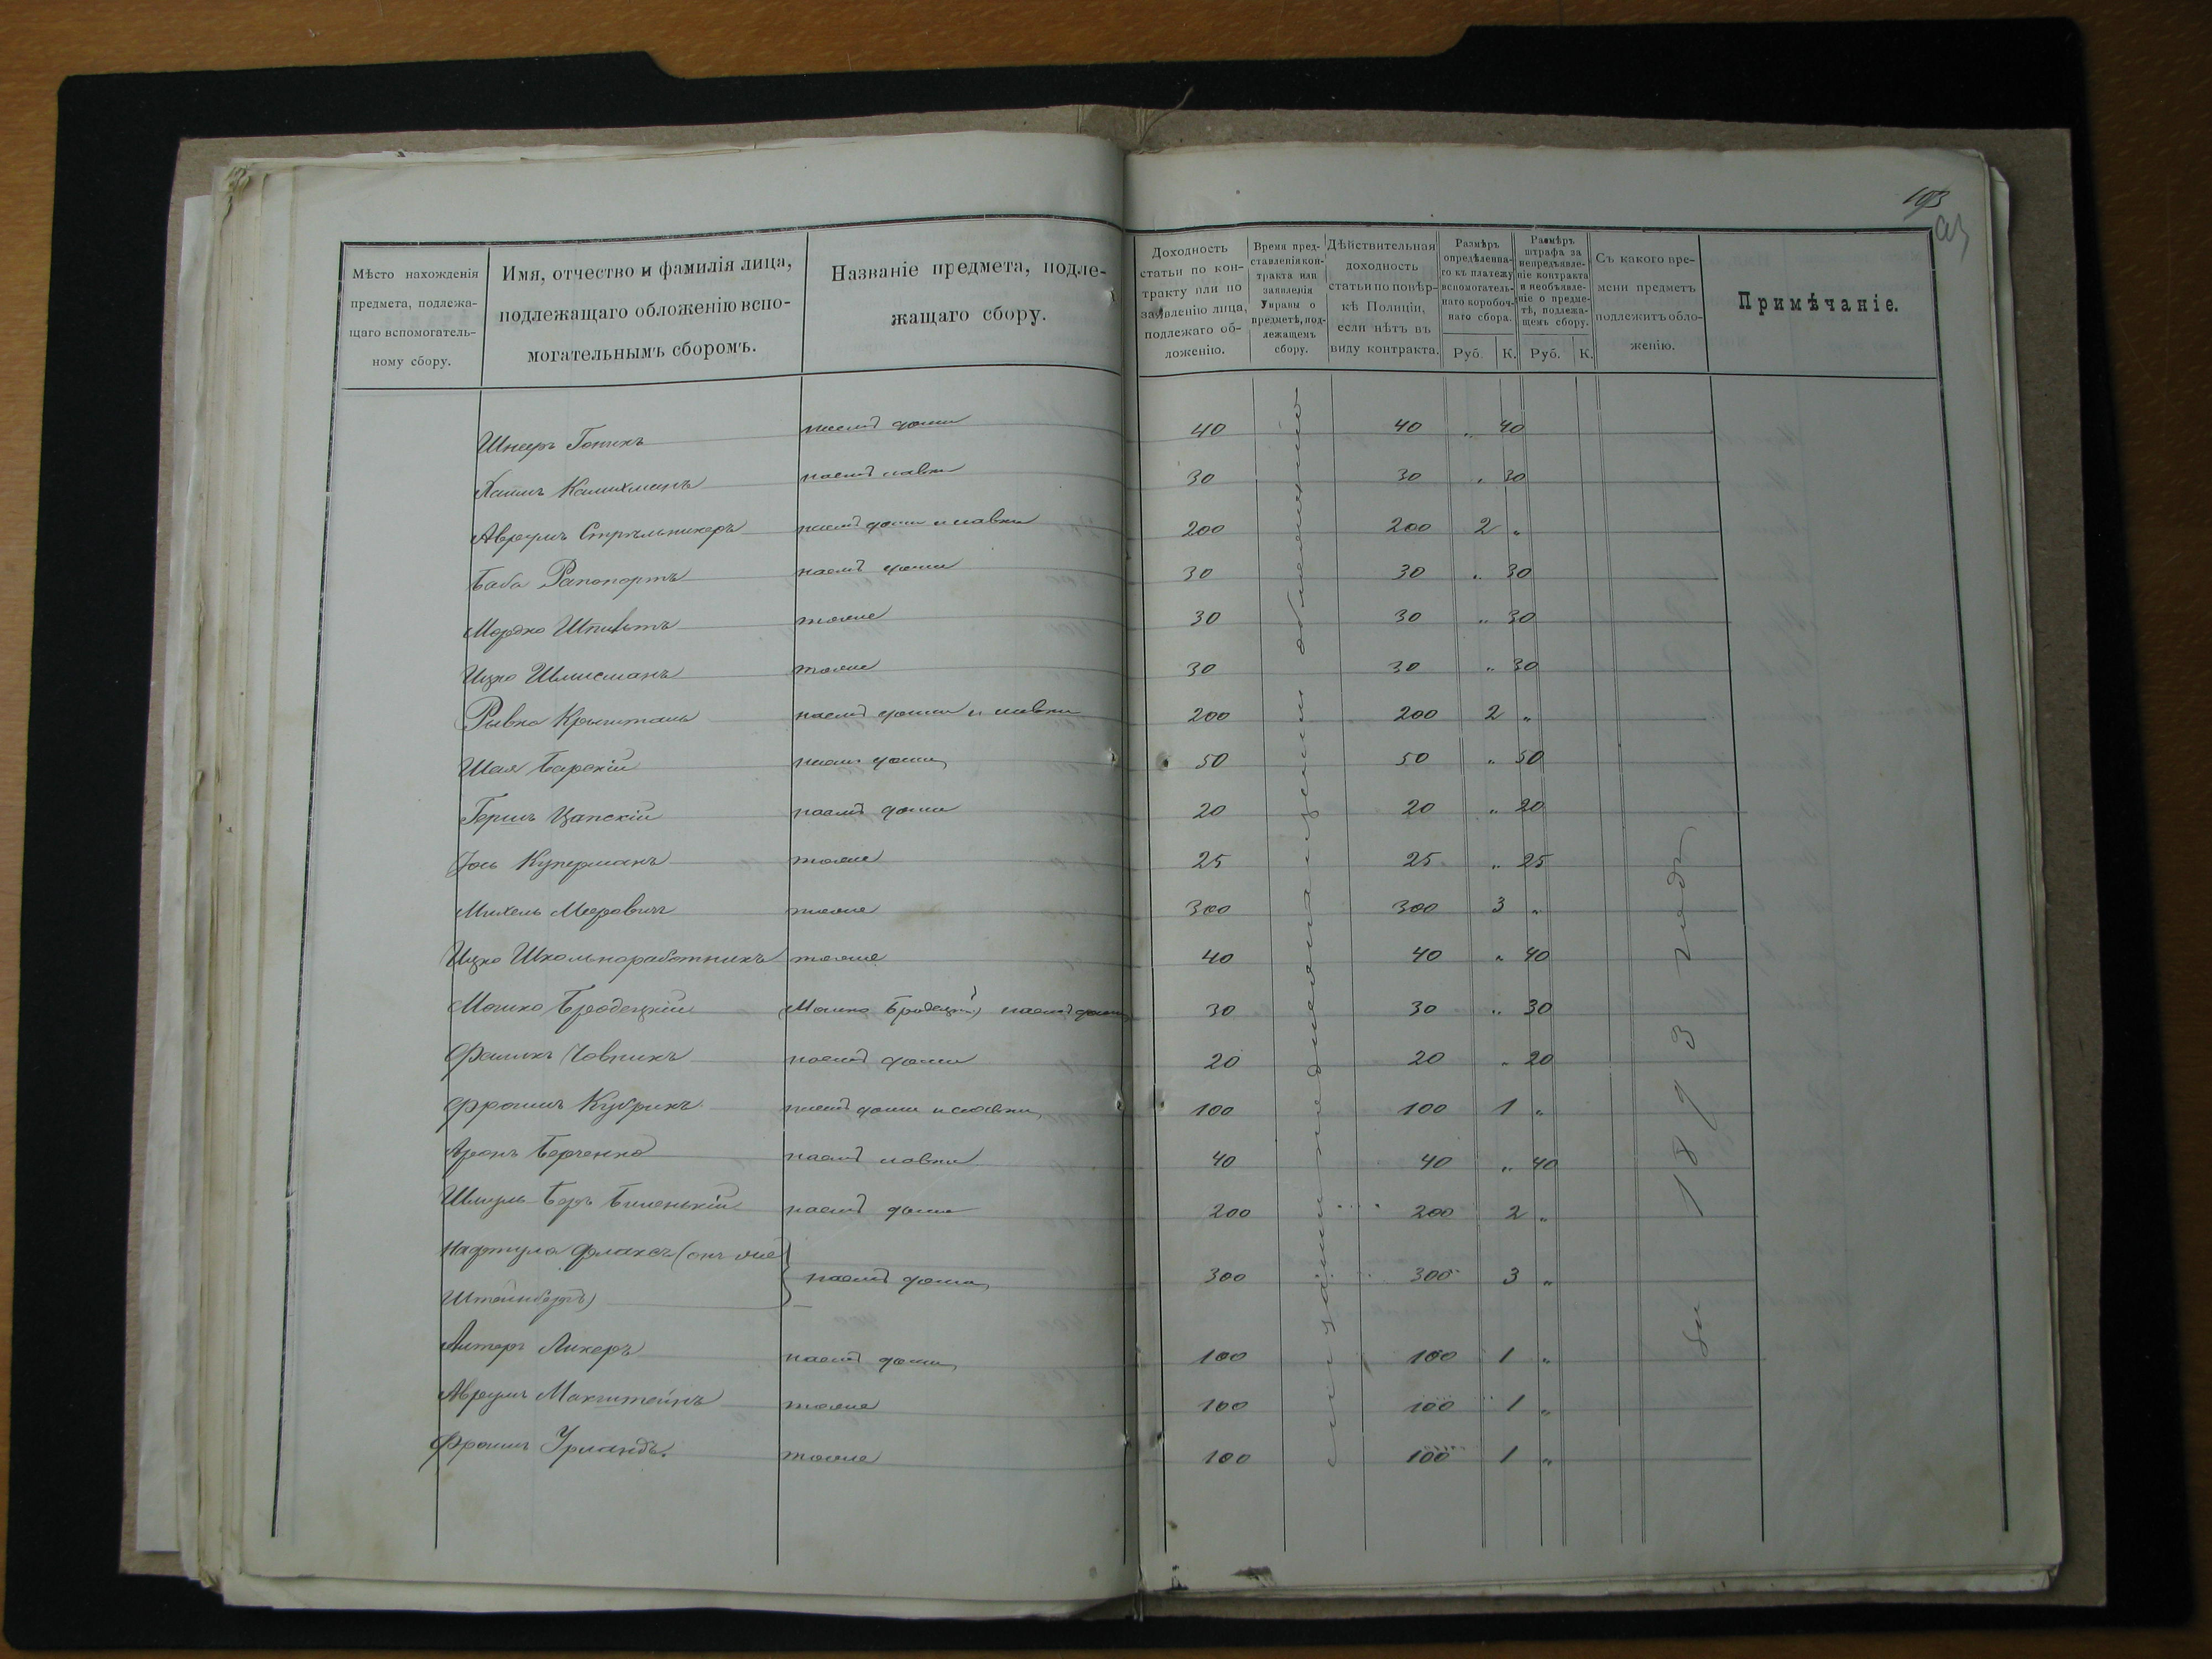 193
Мѣсто нахожденія
предмета, подлежа-
щаго вспомогатель-
ному сбору.
Имя, отчество и фамилія лица,
подлежащаго обложенію вспо-
могательнымъ сборомъ.
Названіе предмета, подле-
жащаго сбору.
Доходность
статьи по кон-
тракту или по
заявленію лица,
подлежаго об-
ложенію.
Время пред-
ставленія кон-
тракта или
заявленія
Управы о
предметѣ, под-
лежащемъ
сбору.
Дѣйствительная
доходность
статьи по повѣр-
кѣ Полиціи,
если нѣтъ въ
виду контракта.
Размѣръ
опредѣленна-
го къ платежу
вспомогатель-
наго коробоч-
наго сбора.
Руб. К.
Размѣръ
штрафа за
непредъявле-
ніе контракта
и необъявле-
ніе о предме-
тѣ, подлежа-
щемъ сбору.
Руб. К.
Съ какого вре-
мени предметъ
подлежитъ обло-
женію.
Примѣчаніе.
Шнеръ Гопикъ наемъ дома 40 40 „ 40
Хаимъ Калихманъ наемъ лавки 30 30 „ 30
Аврумъ Стрѣльникеръ наемъ дома и лавки 200 200 2 „
Баба Рапопортъ наемъ дома 30 30 „ 30
Мордко тоже 30 30 „ 30
Ицко Шлисманъ тоже 30 30 „ 30
Рывка наемъ дома и лавки 200 200 2 „
Шая Барскій наемъ дома 50 50 „ 50
Гершъ Цапскій наемъ дома 20 20 „ 20
Іось Куперманъ тоже 25 25 „ 25
Михель Мееровичъ тоже 300 300 3 „
Ицко Школьноработникъ тоже 40 40 „ 40
Мошко Бродецкій (Мошко Бродецкій) наемъ дома 30 30 „ 30
Човникъ наемъ дома 20 20 „ 20
Фроимъ Кубрикъ наемъ дома и лавки 100 100 1 „
Аронъ Берченко наемъ лавки 40 40 „ 40
Шмуль Беръ Биленькій наемъ дома 200 200 2 „
Нафтула Флаксъ (онъ же
Штейнбергъ) наемъ дома 300 300 3 „
Алтеръ Ликеръ наемъ дома 100 100 1 „
Аврумъ Макштейнъ тоже 100 100 1 „
Фроимъ Урландъ. тоже 100 100 1 „
1873 года